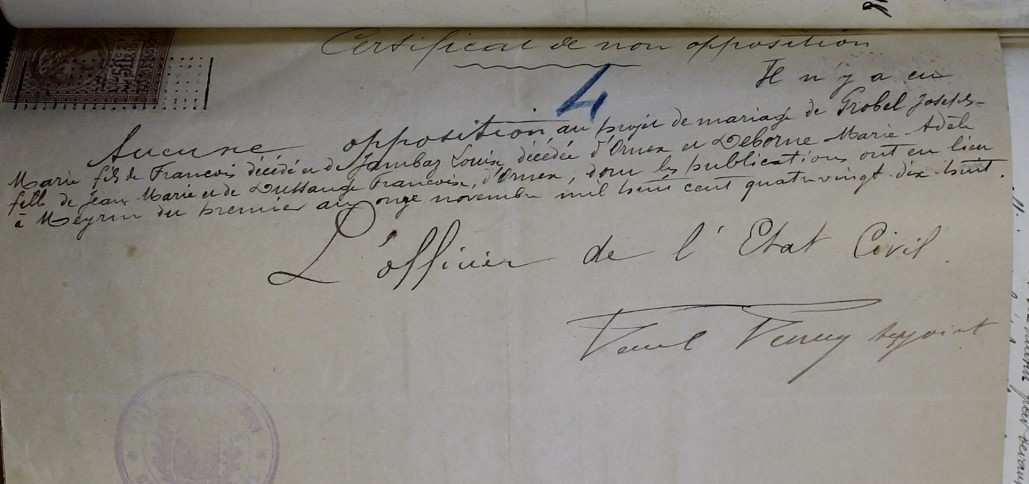 Certificat de non opposition
4
Il n'y a eu
Aucune opposition au projet de mariage de Grobel Joseph-
Marie fils de François décédé et de Jambaz Louise, décédée d'Ornex et Deborne Marie Adèle
fille de Jean Marie et de Dussauge Françoise, d'Ornex, dont les publications ont eu lieu
à Meyrin du premier au onze novembre mil huit cent quatre vingt dix huit.
L'officier de l'Etat Civil.